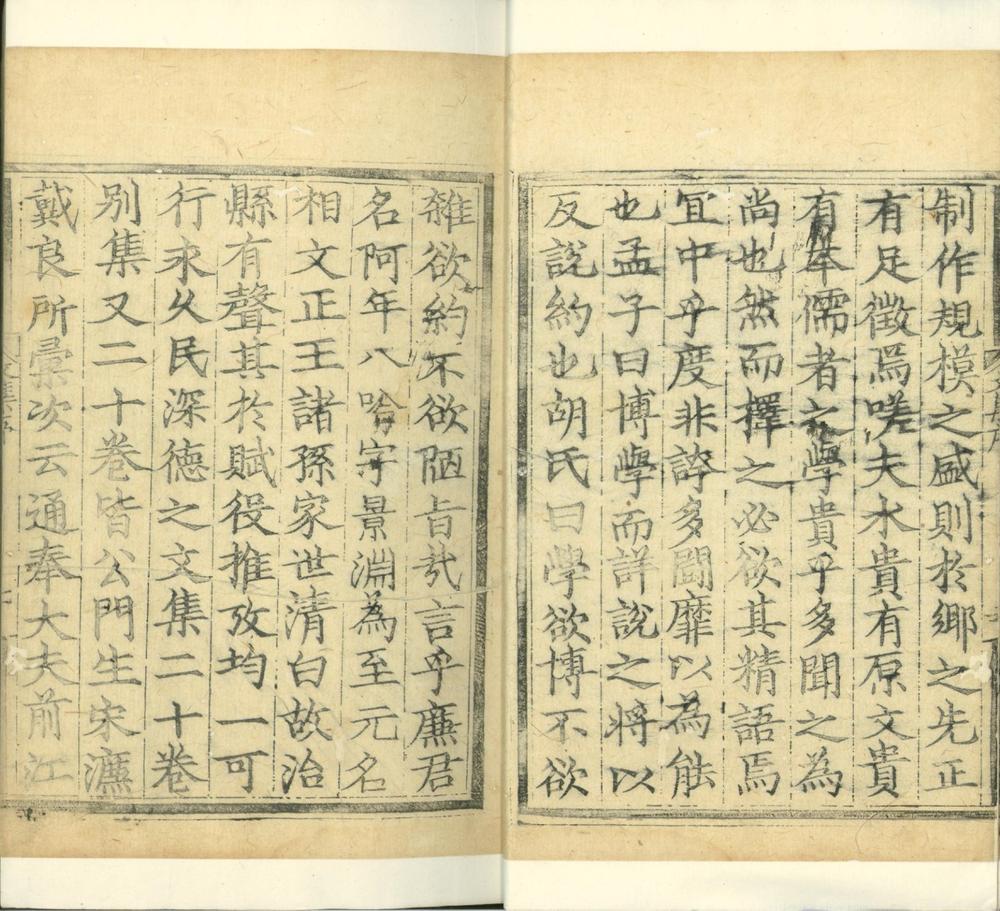 制作規模之盛則於鄉之先正
有足徵焉嗟夫水貴有原文貴
有本儒者之學貴乎多聞之為
尚也然而擇之必欲其精語焉
宜中乎度非誇多鬪靡以為能
也孟子曰博學而詳說之將以
反說約也胡氏曰學欲博不欲
雜欲約不欲陋旨㢤言乎廉君
名阿年八哈字景淵為至元名
相文正王諸孫家世清白故治
縣有聲其於賦役推攷均一可
行求久民深德之文集二十卷
別集又二十卷皆公門生宋濂
戴良所彚次云通奉大夫前江